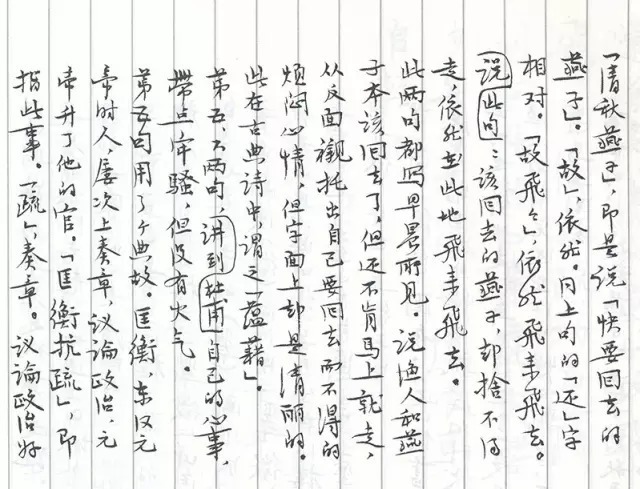 「清秋燕子」，即是说「快要回去的
燕子」。「故」，依然。同上句的「还」字
相对。「故飞飞」，依然飞来飞去。
说此句：该回去的燕子，却捨不得
走，依然在此地飞来飞去。
此两句都写早晨所见。说渔人和燕
子本该回去了，但还不肯马上就走，
从反面襯托出自己要回去而不得的
烦闷心情，但字面上却是清丽的。
此在古典诗中，谓之「蕴藉」。
第五、六两句，讲到杜甫自己的心事，
带点牢骚，但没有火气。
第五句用了个典故。匡衡，东汉元
帝时人，屡次上奏章，议论政治，元
帝升了他的官。「匡衡抗疏」，即
指此事。「疏」，奏章。议论政治好